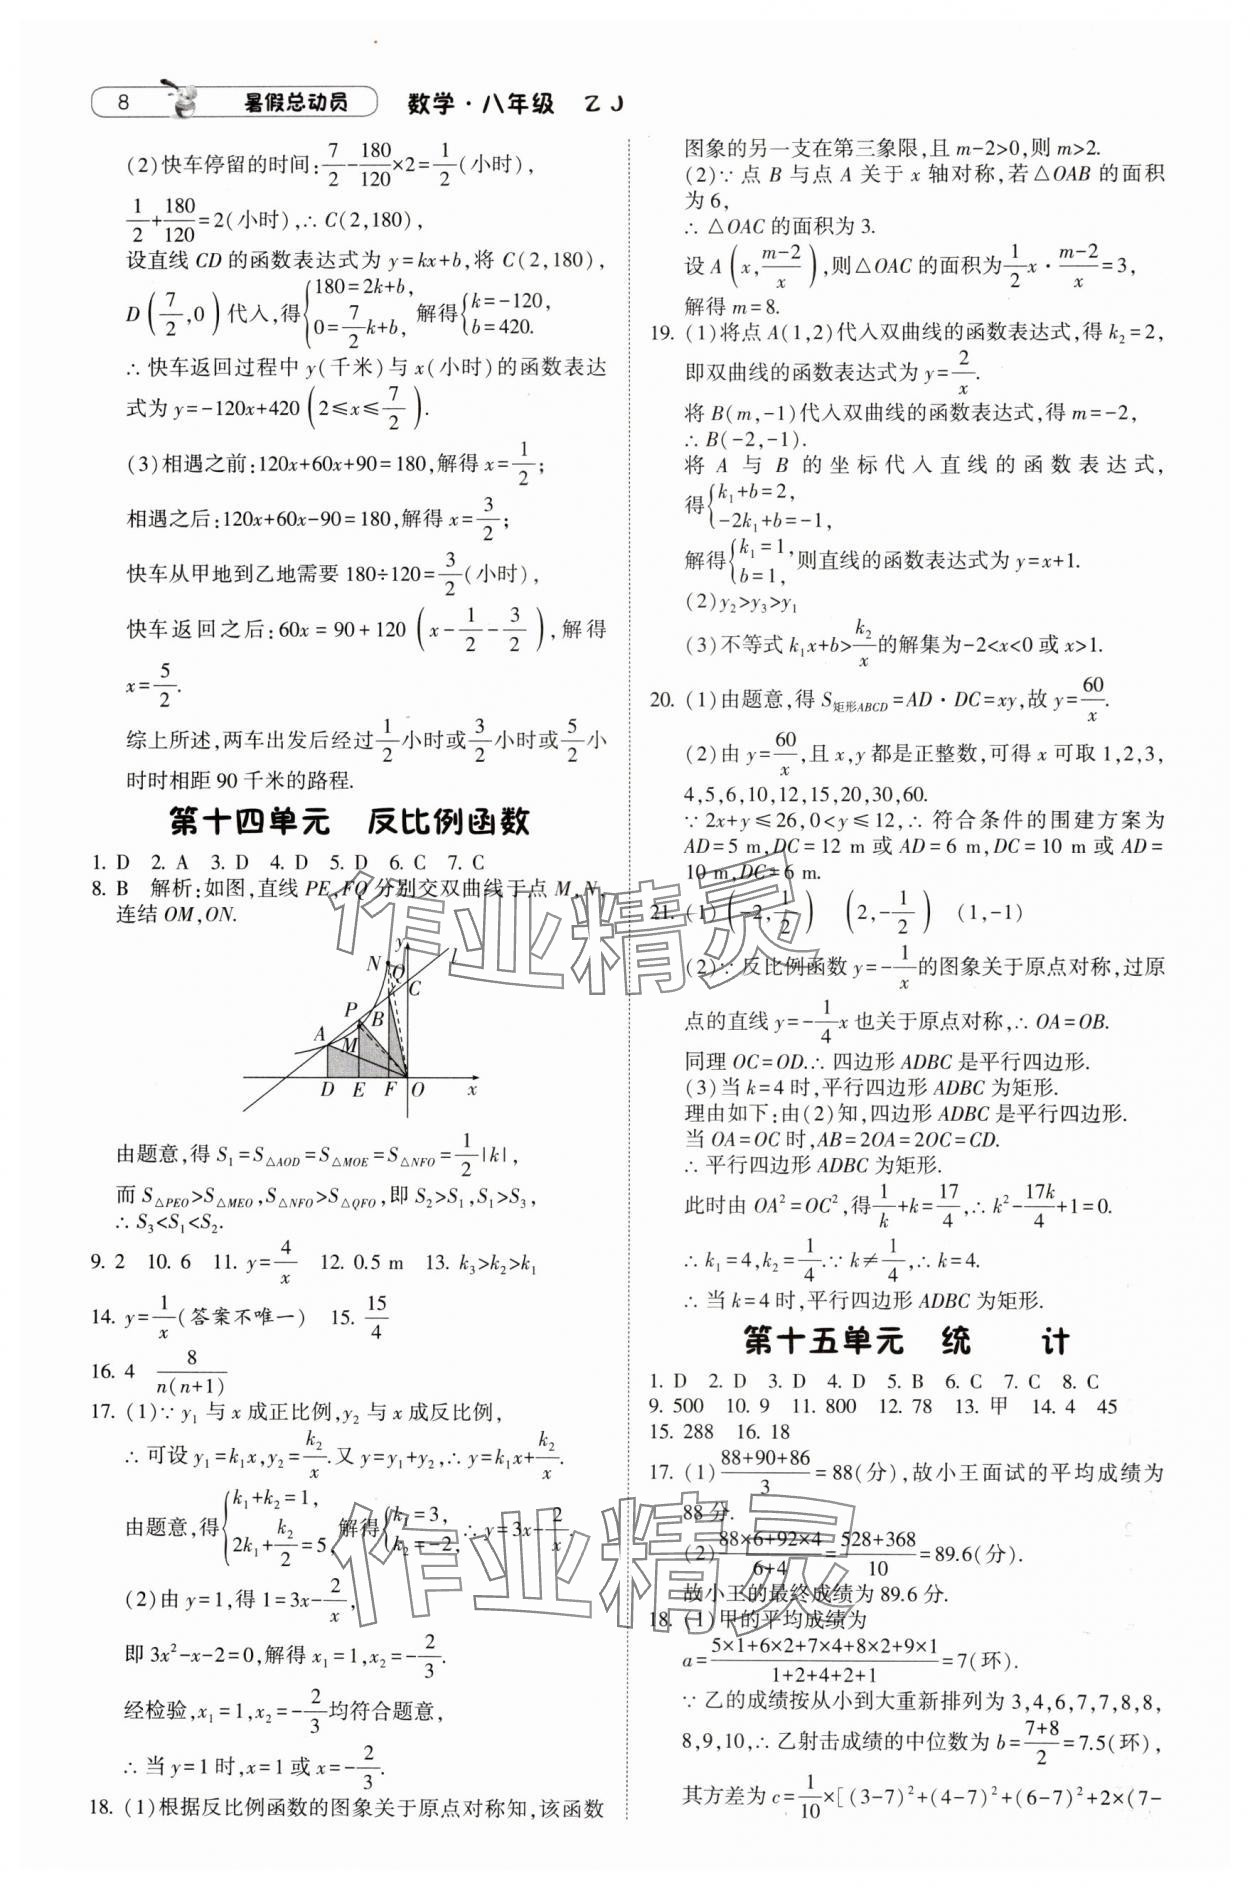 8 暑假总动员 数学·八年级 ZJ
(2)快车停留的时间:7/2-180/120×2=1/2(小时),
1/2+180/120=2(小时),∴C(2,180),
设直线CD的函数表达式为y=kx+b,将C(2,180),
D(7/2,0)代入,得{180=2k+b, 0=7/2k+b, 解得{k=-120, b=420.
∴快车返回过程中y(千米)与x(小时)的函数表达
式为y=-120x+420(2≤x≤7/2).
(3)相遇之前:120x+60x+90=180,解得x=1/2;
相遇之后:120x+60x-90=180,解得x=3/2;
快车从甲地到乙地需要180÷120=3/2(小时),
快车返回之后:60x=90+120(x-1/2-3/2),解得
x=5/2.
综上所述,两车出发后经过1/2小时或3/2小时或5/2小
时时相距90千米的路程.
第十四单元 反比例函数
1. D 2. A 3. D 4. D 5. D 6. C 7. C
8. B 解析:如图,直线PE,FQ分别交双曲线于点M,N,
连结OM,ON.
y l
N Q C
P B
A M
D E F O x
由题意,得S₁=S△AOD=S△MOE=S△NFO=1/2|k|,
而S△PEO>S△MEO,S△NFO>S△QFO,即S₂>S₁,S₁>S₃,
∴S₃<S₁<S₂.
9. 2 10. 6 11. y=4/x 12. 0.5 m 13. k₃>k₂>k₁
14. y=1/x(答案不唯一) 15. 15/4
16. 4 8/n(n+1)
17. (1)∵y₁与x成正比例,y₂与x成反比例,
∴可设y₁=k₁x,y₂=k₂/x.又y=y₁+y₂,∴y=k₁x+k₂/x.
由题意,得{k₁+k₂=1, 2k₁+k₂/2=5, 解得{k₁=3, k₂=-2, ∴y=3x-2/x.
(2)由y=1,得1=3x-2/x,
即3x²-x-2=0,解得x₁=1,x₂=-2/3.
经检验,x₁=1,x₂=-2/3均符合题意,
∴当y=1时,x=1或x=-2/3.
18. (1)根据反比例函数的图象关于原点对称知,该函数
图象的另一支在第三象限,且m-2>0,则m>2.
(2)∵点B与点A关于x轴对称,若△OAB的面积
为6,
∴△OAC的面积为3.
设A(x,m-2/x),则△OAC的面积为1/2x·m-2/x=3,
解得m=8.
19. (1)将点A(1,2)代入双曲线的函数表达式,得k₂=2,
即双曲线的函数表达式为y=2/x.
将B(m,-1)代入双曲线的函数表达式,得m=-2,
∴B(-2,-1).
将A与B的坐标代入直线的函数表达式,
得{k₁+b=2, -2k₁+b=-1,
解得{k₁=1, b=1, 则直线的函数表达式为y=x+1.
(2)y₂>y₃>y₁
(3)不等式k₁x+b>k₂/x的解集为-2<x<0或x>1.
20. (1)由题意,得S矩形ABCD=AD·DC=xy,故y=60/x.
(2)由y=60/x,且x,y都是正整数,可得x可取1,2,3,
4,5,6,10,12,15,20,30,60.
∵2x+y≤26,0<y≤12,∴符合条件的围建方案为
AD=5 m,DC=12 m或AD=6 m,DC=10 m或AD=
10 m,DC=6 m.
21. (1)(-2,1/2) (2,-1/2) (1,-1)
(2)∵反比例函数y=-1/x的图象关于原点对称,过原
点的直线y=-1/4x也关于原点对称,∴OA=OB.
同理OC=OD.∴四边形ADBC是平行四边形.
(3)当k=4时,平行四边形ADBC为矩形.
理由如下:由(2)知,四边形ADBC是平行四边形.
当OA=OC时,AB=2OA=2OC=CD.
∴平行四边形ADBC为矩形.
此时由OA²=OC²,得1/k+k=17/4,∴k²-17k/4+1=0.
∴k₁=4,k₂=1/4.∵k≠1/4,∴k=4.
∴当k=4时,平行四边形ADBC为矩形.
第十五单元 统 计
1. D 2. D 3. D 4. D 5. B 6. C 7. C 8. C
9. 500 10. 9 11. 800 12. 78 13. 甲 14. 4 45
15. 288 16. 18
17. (1)88+90+86/3=88(分),故小王面试的平均成绩为
88分.
(2)88×6+92×4/6+4=528+368/10=89.6(分).
故小王的最终成绩为89.6分.
18. (1)甲的平均成绩为
a=5×1+6×2+7×4+8×2+9×1/1+2+4+2+1=7(环).
∵乙的成绩按从小到大重新排列为3,4,6,7,7,8,8,
8,9,10,∴乙射击成绩的中位数为b=7+8/2=7.5(环),
其方差为c=1/10×[(3-7)²+(4-7)²+(6-7)²+2×(7-
作业精灵
作业精灵